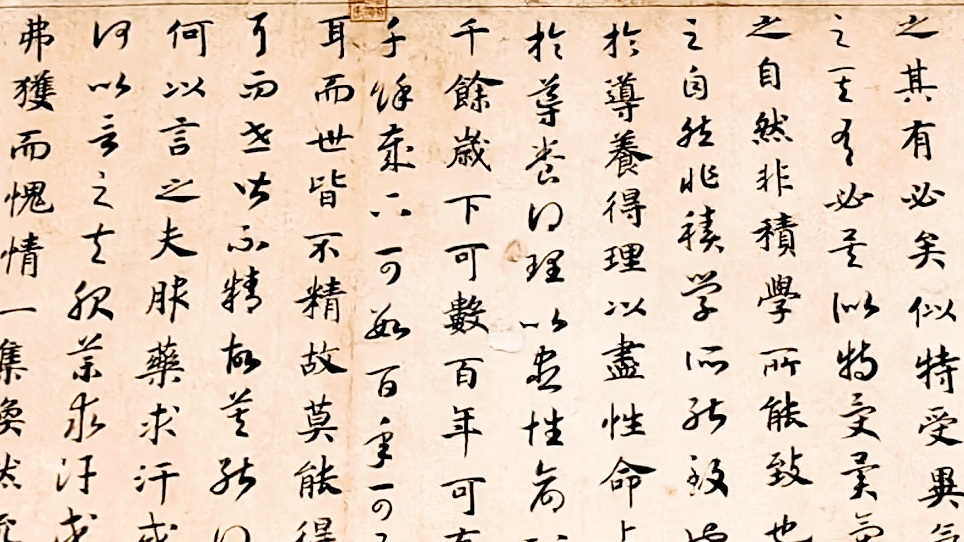 之其有必矣似特受異氣
之其有必矣似特受異氣
之自然非積學所能致也
之自然非積學所能致
於導養得理以盡性命上
於導養得理以盡性命
千餘歲下可數百年可有
千餘歲下可數百年可
耳而世皆不精故莫能得
耳而世皆不精故莫能得
何以言之夫服藥求汗或
何以言之夫服藥求汗或
弗獲而愧情一集渙然流